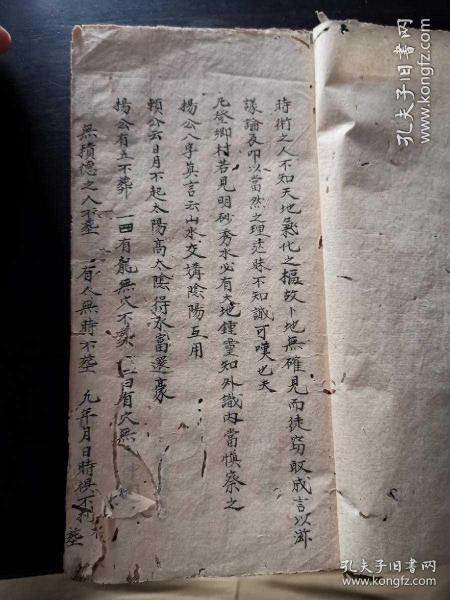 時術之人不知天地氣化之樞故卜地無確見而徒竊取成言以
議論及叩以當然之理茫昧不知識可嘆也夫
凡登鄉村若見明砂秀水必有大地鍾靈知外識內當慎察之
楊公八字真言云山水交媾陰陽互用
賴公云日月不起太陽高太陰得水富還豪
楊公有五不葬 一曰有龍無穴不 二曰有穴無
無積德之人不塟 有人無時不塟 凡年月日時俱不利
塟
孔夫子旧书网
孔夫子旧书网
book.kongfz.com